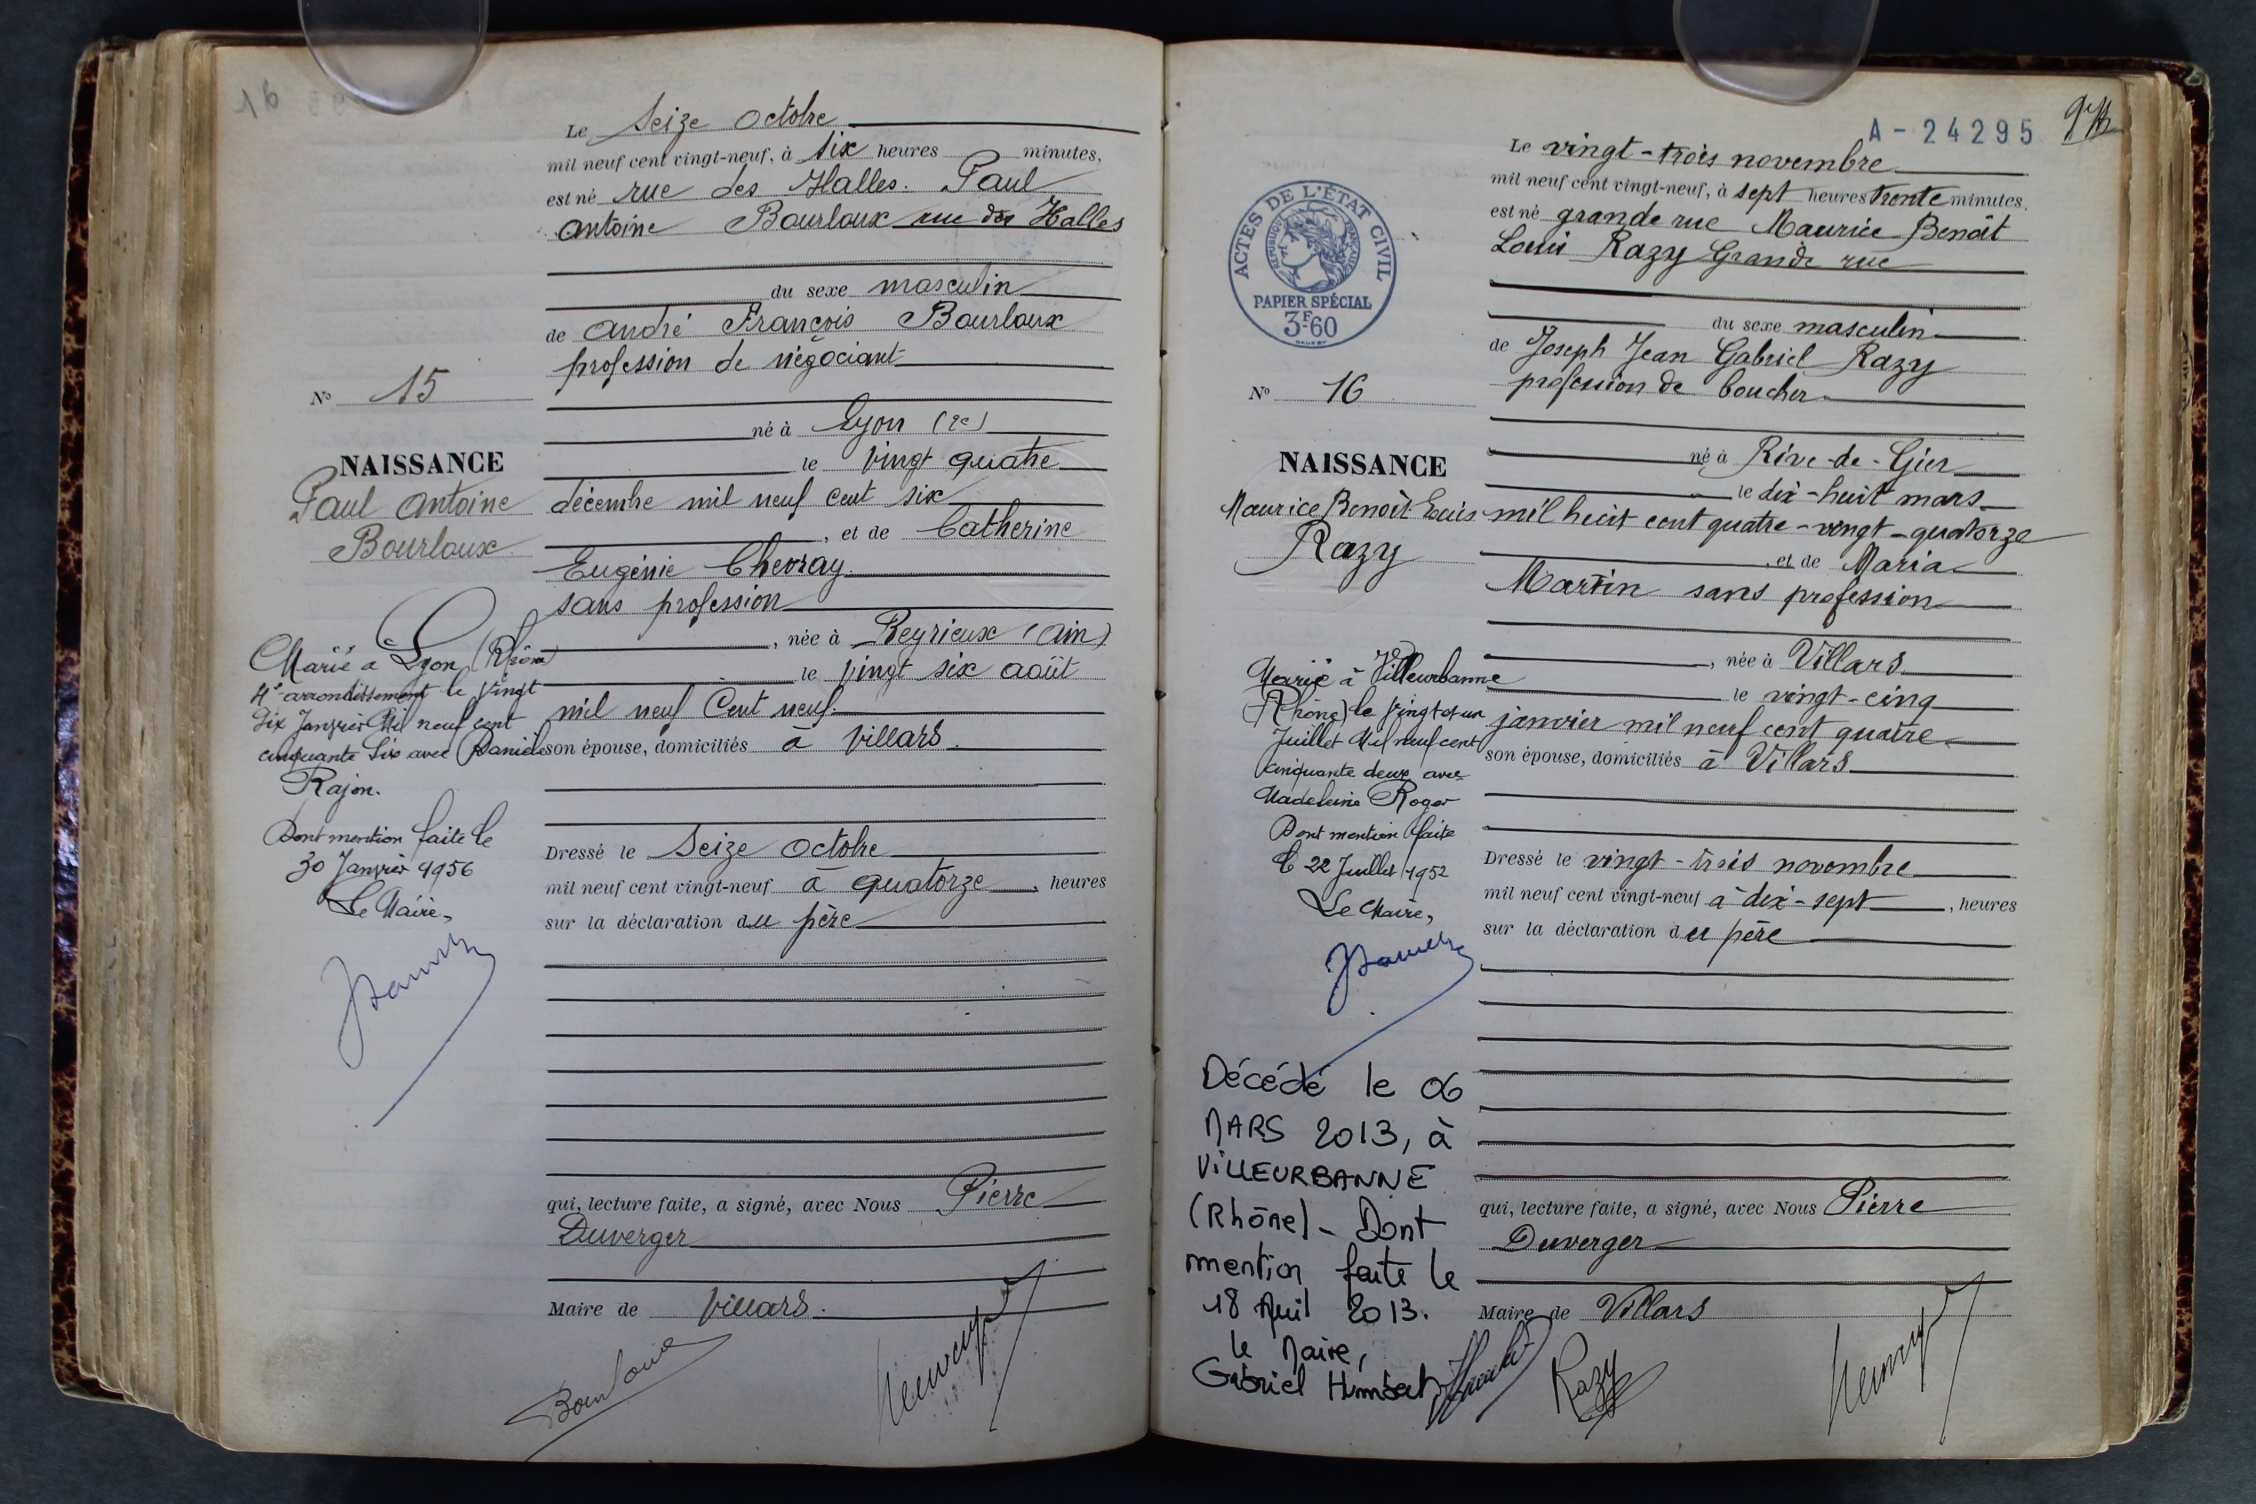 16
Le Seize Octobre
mil neuf cent vingt-neuf, à six heures minutes,
est né rue des Halles. Paul
Antoine Bourloux rue des Halles
du sexe masculin
de André François Bourloux
profession de négociant
né à Lyon (2e)
le vingt quatre
décembre mil neuf cent six
, et de Catherine
Eugénie Chevray
sans profession
, née à Reyrieux (Ain)
le vingt six août
mil neuf Cent neuf.
son épouse, domiciliés à Villars.
Dressé le Seize Octobre
mil neuf cent vingt-neuf à quatorze, heures
sur la déclaration du père
qui, lecture faite, a signé, avec Nous Pierre
Duverger
Maire de Villars.
No 15
NAISSANCE
Paul Antoine
Bourloux
Marié à Lyon (Rhône)
4e arrondissement le vingt
six Janvier Mil neuf cent
cinquante six avec Daniele
Rajon.
Dont mention faite le
30 Janvier 1956
Le Maire,
A-24295
Le vingt-trois novembre
mil neuf cent vingt-neuf, à sept heures trente minutes.
est né grande rue Maurice Benoît
Louis Razy Grande rue
du sexe masculin
de Joseph Jean Gabriel Razy
profession de boucher
né à Rive-de-Gier
le dix-huit mars
mil huit cent quatre-vingt-quatorze
, et de Maria
Martin sans profession
, née à Villars
le vingt-cinq
janvier mil neuf cent quatre
son épouse, domiciliés à Villars
Dressé le vingt-trois novembre
mil neuf cent vingt-neuf à dix-sept, heures
sur la déclaration du père
qui, lecture faite, a signé, avec Nous Pierre
Duverger
Maire de Villars
Razy
ACTES DE L'ÉTAT CIVIL
RÉPUBLIQUE FRANÇAISE
PAPIER SPÉCIAL
3F60
No 16
NAISSANCE
Maurice Benoît Louis
Razy
Marié à Villeurbanne
(Rhône) le vingt et un
Juillet Mil neuf cent
cinquante deux avec
Madeleine Roger
Dont mention faite
le 22 Juillet 1952
Le Maire,
Décédé le 06
MARS 2013, à
VILLEURBANNE
(Rhône) - Dont
mention faite le
18 Avril 2013.
le Maire,
Gabriel Humbert